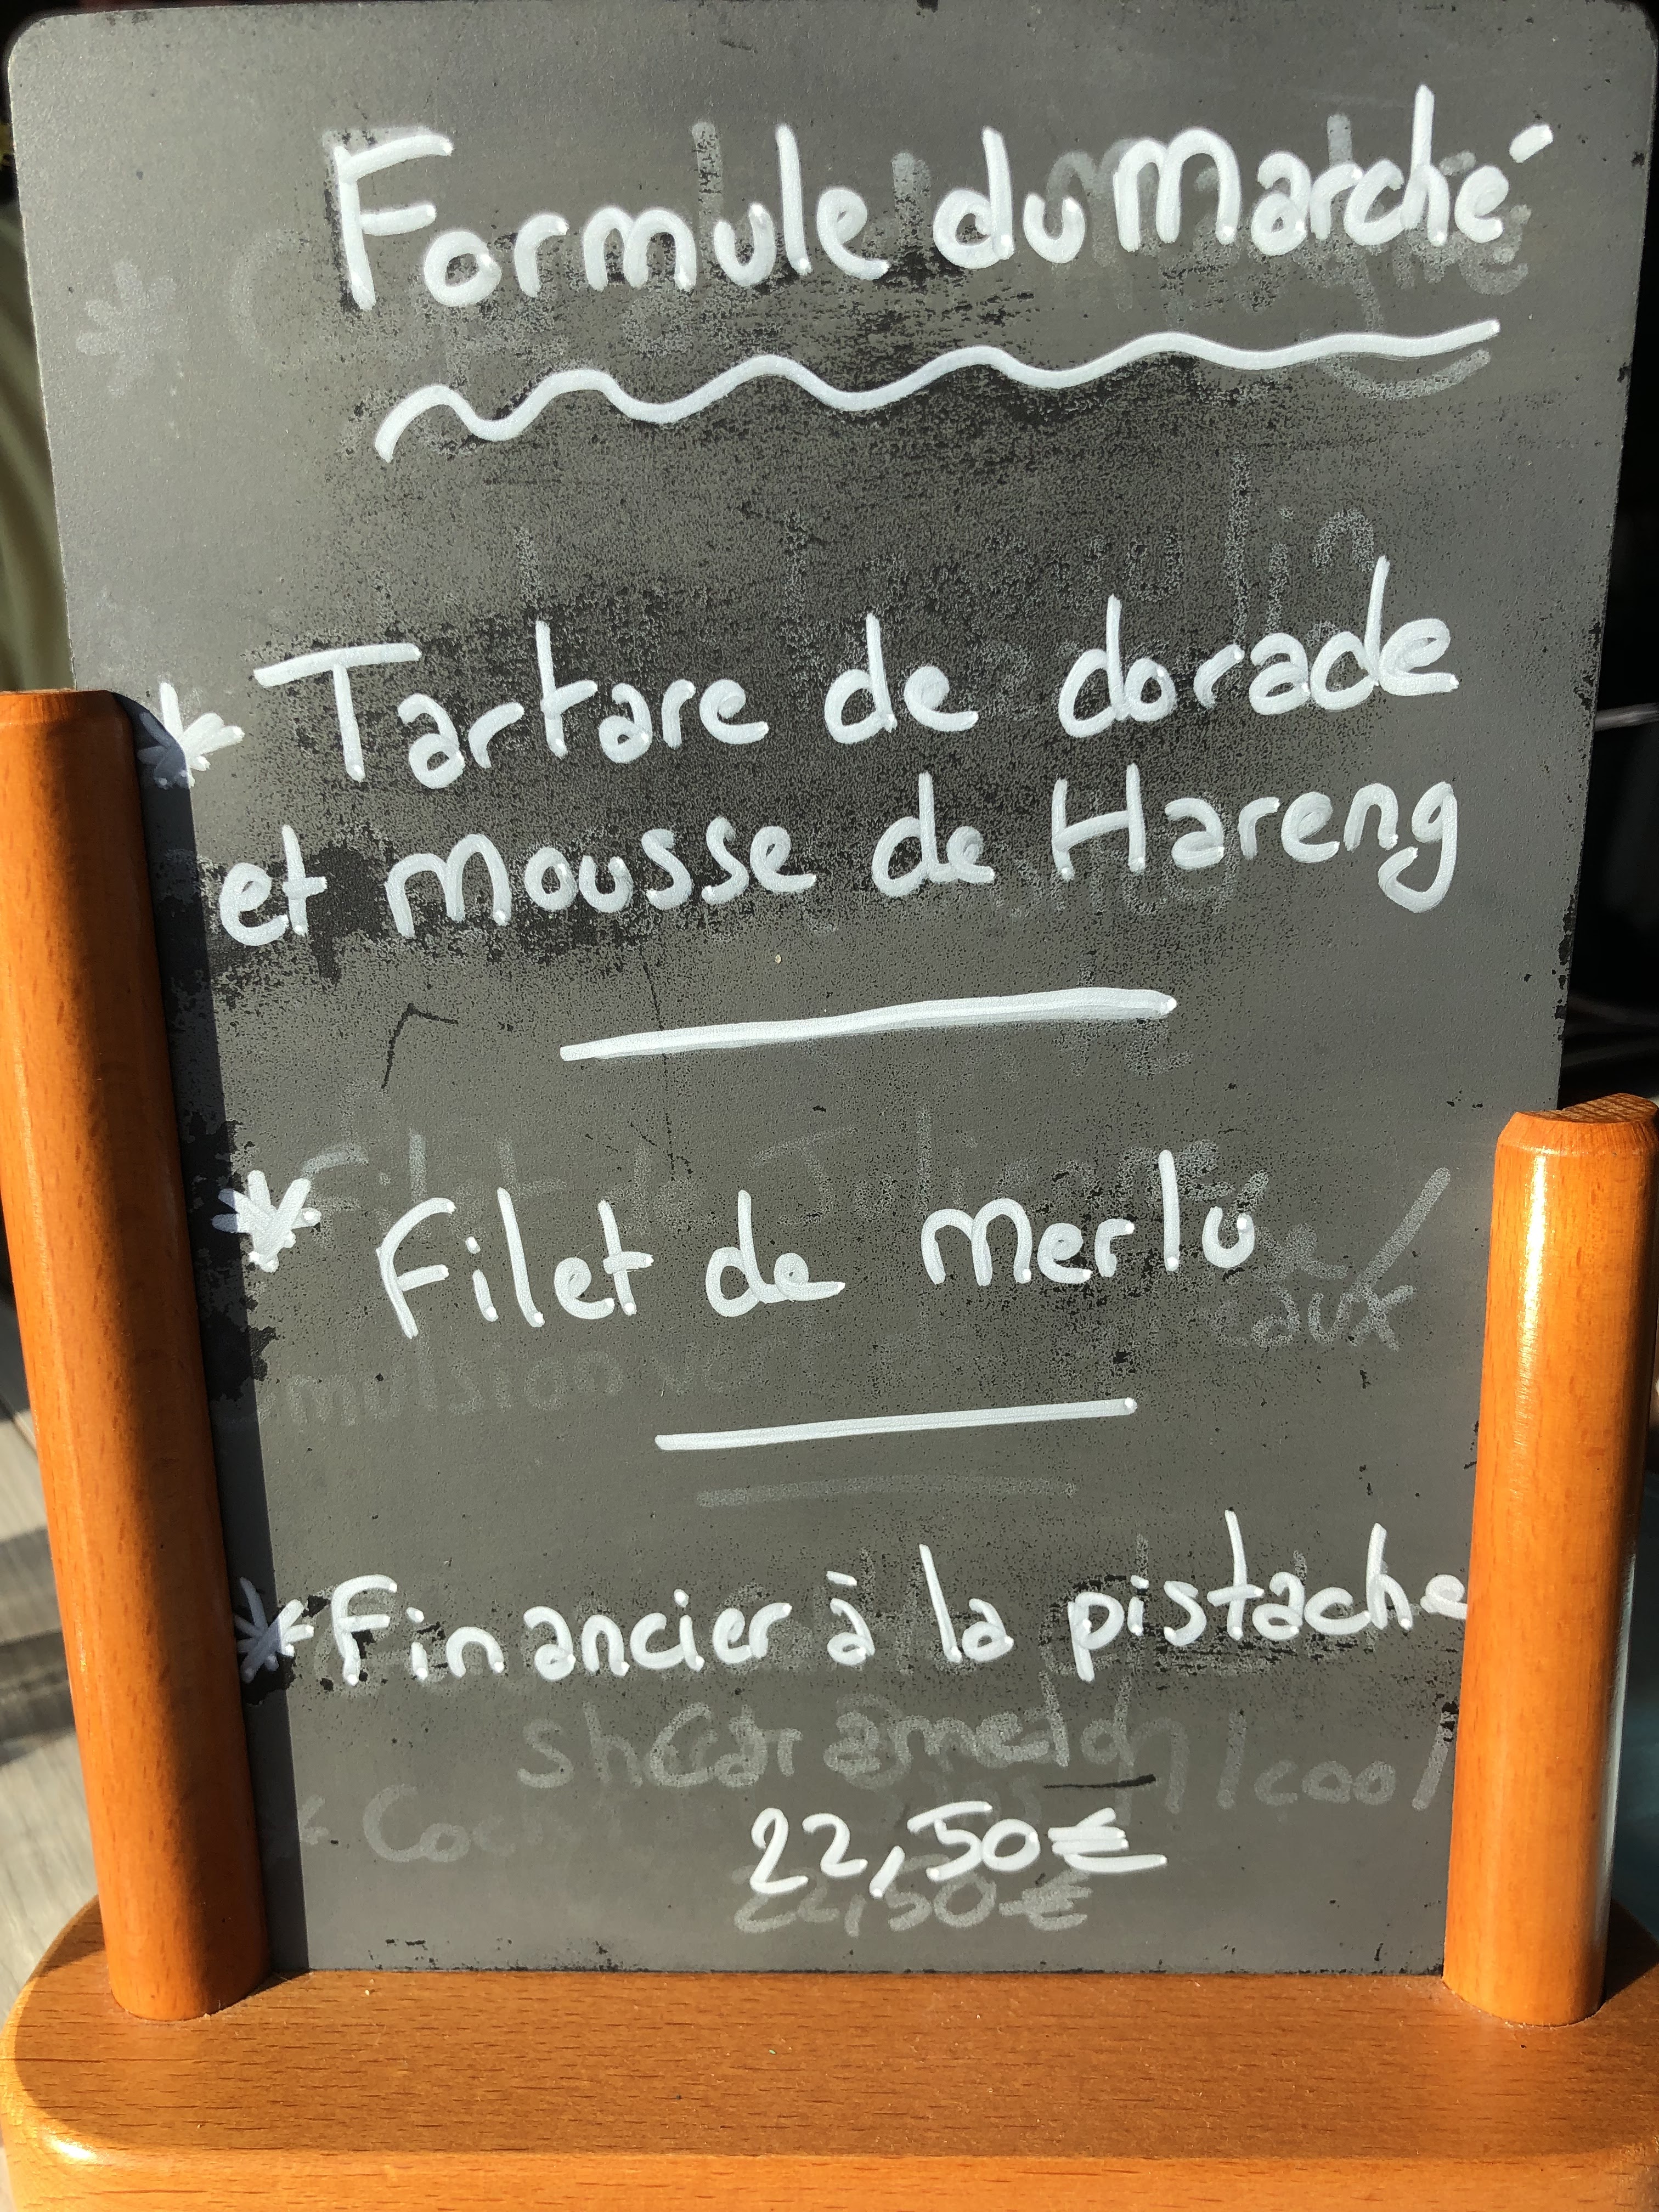 Formule du Marché
* Tartare de dorade
et mousse de Hareng
* Filet de merlu
* Financier à la pistache
22,50€
22,50€